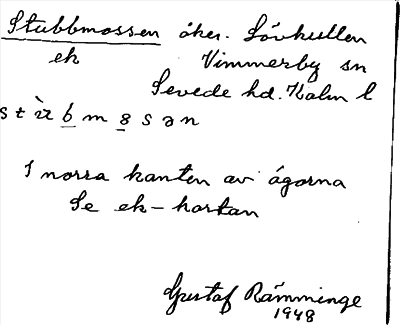 Stubbmossen åker. Lövkullen
ek Vimmerby sn
Sevede hd. Kalm l
s t ù b m s s ə n
I norra kanten av ägorna
Se ek-kartan
Gustaf Rämminge
1948